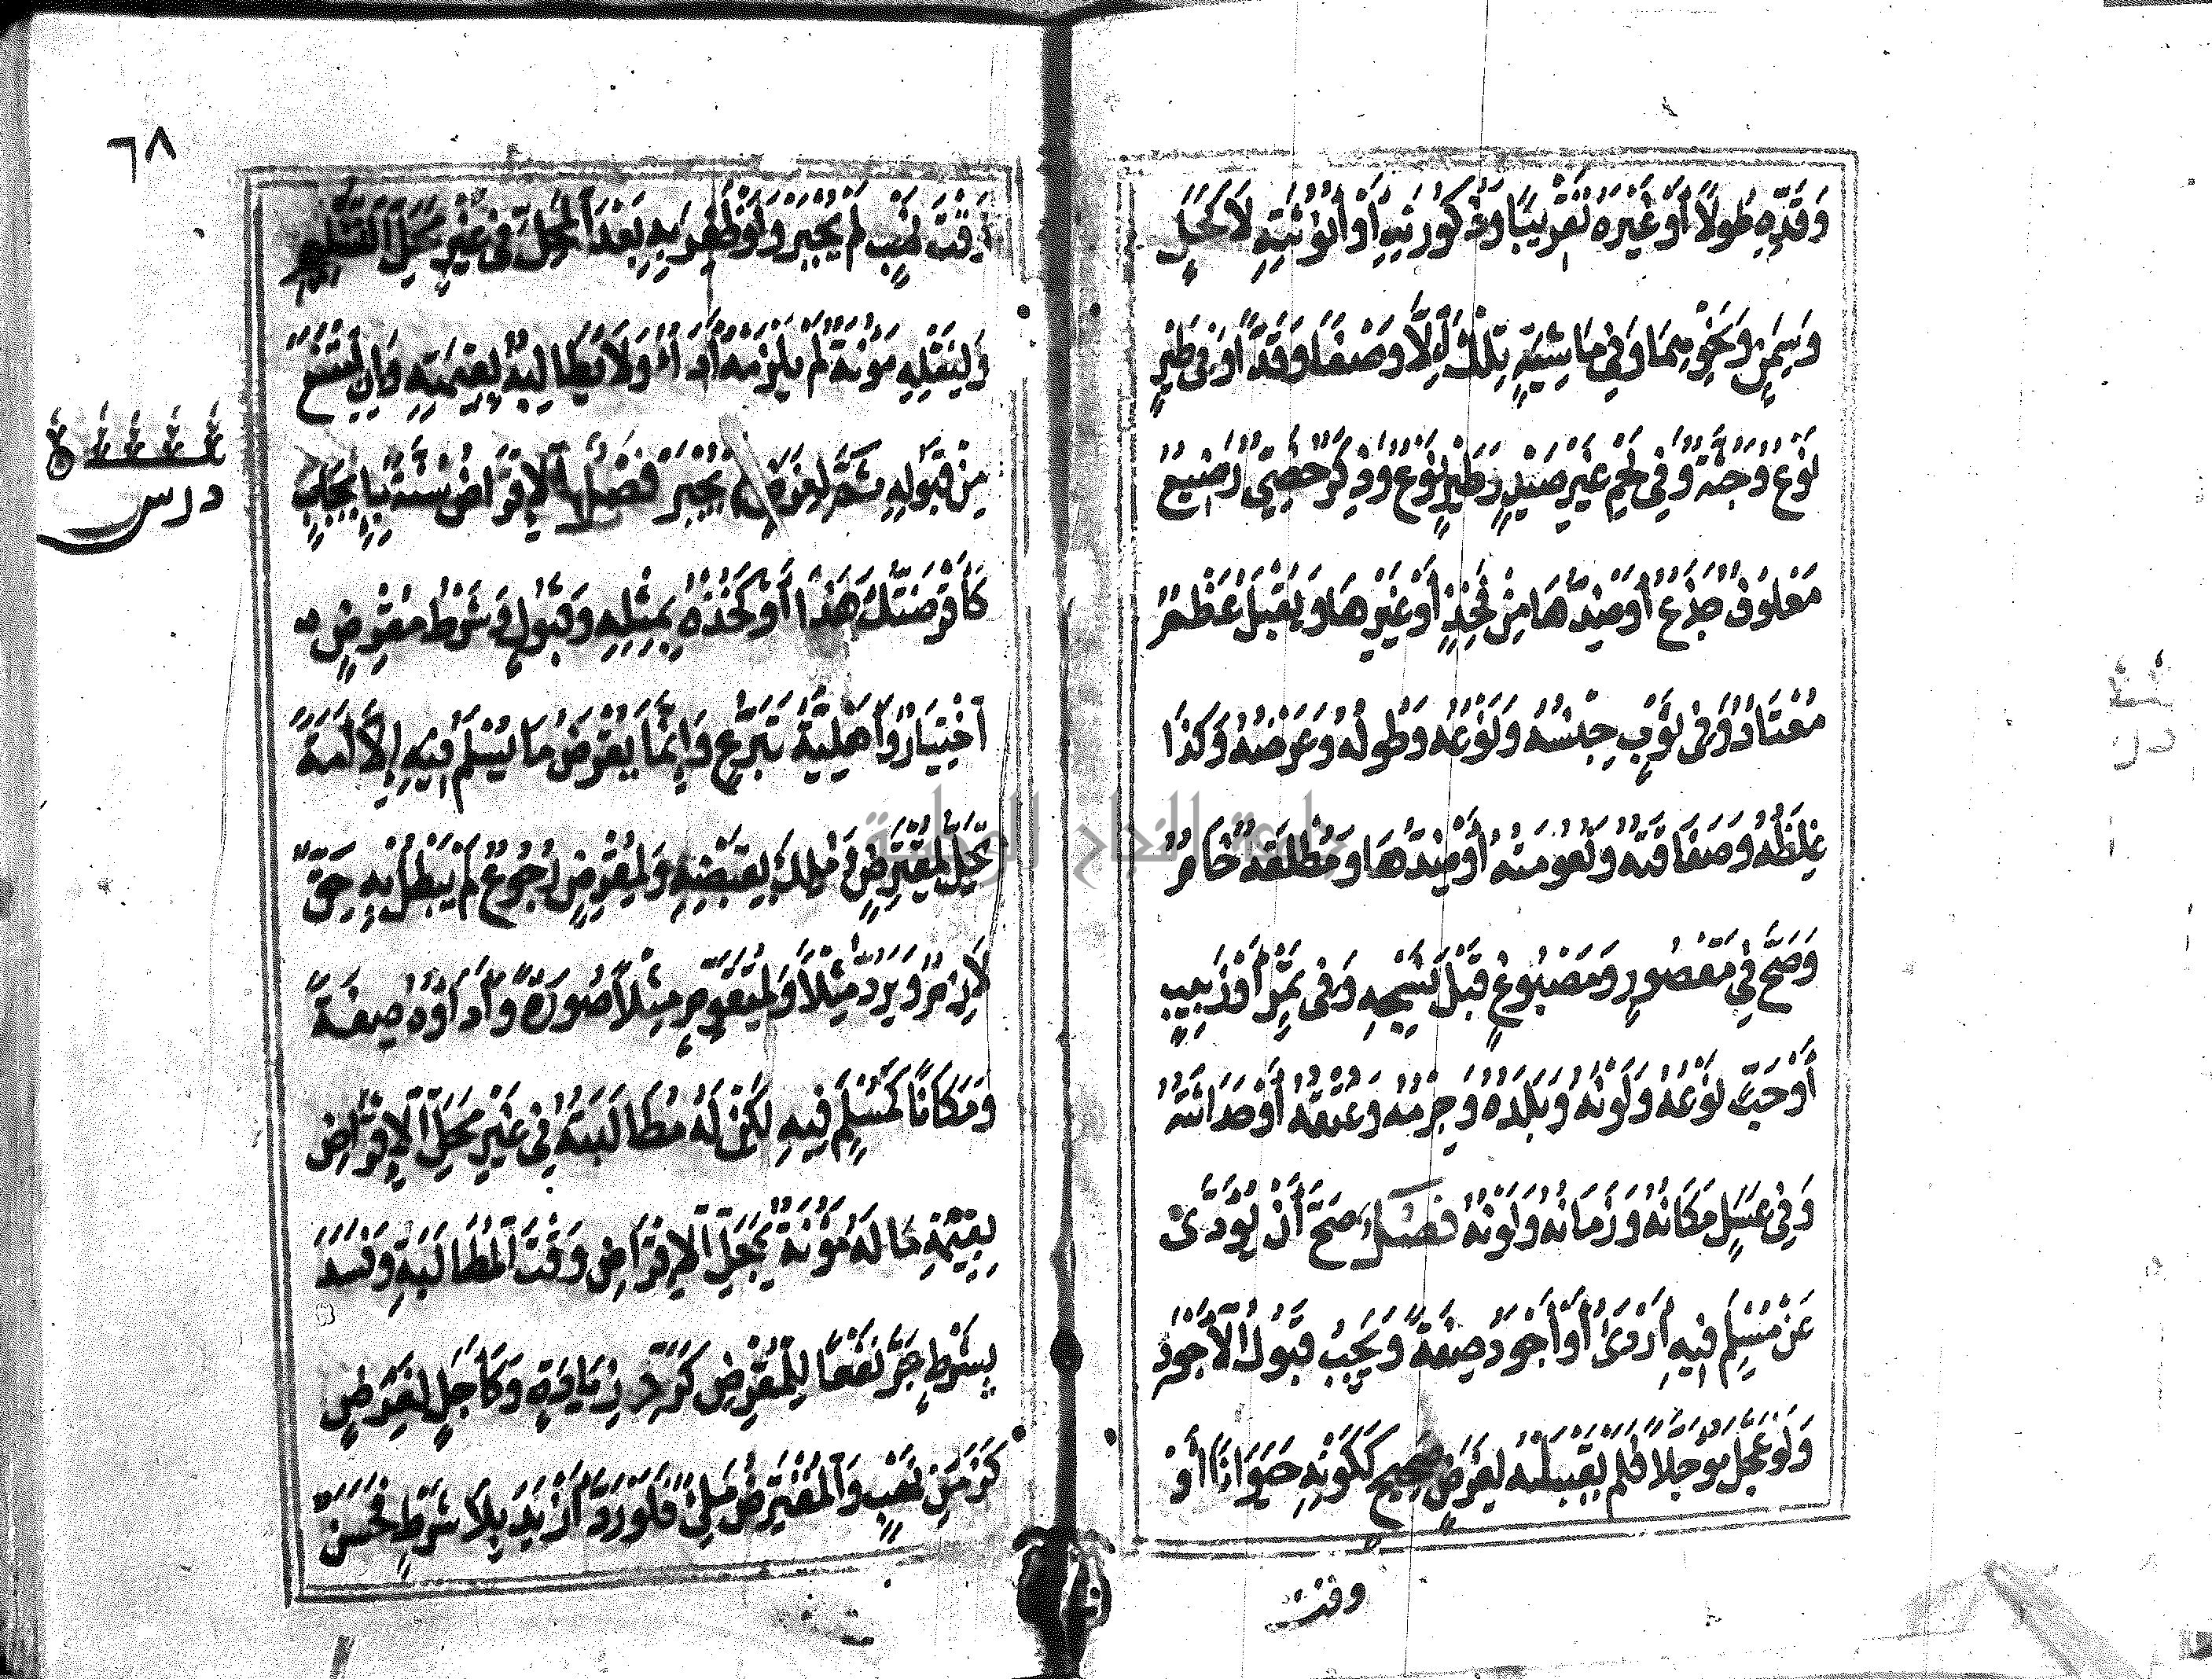 وَقَدِّهِ طُولًا أَوْ غَيْرَهُ تَقْرِيبًا وَذُكُورَتِهِ أَوْ أُنُوثَتِهِ لَا كَحَلٍ
وَسِمَنٍ وَنَحْوِهِمَا وَفِي مَاشِيَةٍ تِلْكَ إِلَّا وَصْفًا وَقَدًّا وَفِي طَيْرٍ
نَوْعٌ وَجُثَّةٌ وَفِي لَحْمِ غَيْرِ صَيْدٍ وَطَيْرٍ نَوْعٌ وَذَكَرٌ خَصِيٌّ رَضِيعٌ
مَعْلُوفٌ جَذَعٌ أَوْ ضِدُّهَا مِنْ فَخِذٍ أَوْ غَيْرِهَا وَيُقْبَلُ عَظْمٌ
مُعْتَادٌ وَفِي ثَوْبٍ جِنْسُهُ وَنَوْعُهُ وَطُولُهُ وَعَرْضُهُ وَكَذَا
غِلَظُهُ وَصَفَاقَتُهُ وَنُعُومَتُهُ أَوْ ضِدُّهَا وَمُطْلَقُهُ خَامٌ
وَصَحَّ فِي مَقْصُورٍ وَمَصْبُوغٍ قَبْلَ نَسْجِهِ وَفِي تَمْرٍ أَوْ زَبِيبٍ
أَوْ حَبٍّ نَوْعُهُ وَلَوْنُهُ وَبَلَدُهُ وَجِرْمُهُ وَعِتْقُهُ أَوْ حَدَاثَتُهُ
وَفِي عَسَلٍ مَكَانُهُ وَزَمَانُهُ وَلَوْنُهُ فَصْلٌ صَحَّ أَنْ يُؤَدَّى
عَنْ مُسْلَمٍ فِيهِ أَرْدَى أَوْ أَجْوَدُ صِفَةً وَيَجِبُ قَبُولُ الْأَجْوَدِ
وَلَوْ عَجَّلَ مُؤَجَّلًا فَلَمْ يَقْبَلْهُ لِغَرَضٍ صَحِيحٍ كَكَوْنِهِ حَيَوَانًا أَوْ
وقت
٦٨
وَقْتَ نَهْبٍ لَمْ يُجْبَرْ وَلَوْ ظَفِرَ بِهِ بَعْدَ الْمَحِلِّ فِي غَيْرِ مَحَلِّ التَّسْلِيمِ
وَلِنَقْلِهِ مُؤْنَةٌ لَمْ يَلْزَمْهُ أَدَاءٌ وَلَا يُطَالِبُهُ بِقِيمَتِهِ وَإِنِ امْتَنَعَ
مِنْ قَبُولِهِ ثَمَّ لِغَرَضٍ لَمْ يُجْبَرْ فَصْلٌ الْإِقْرَاضُ سُنَّةٌ بِإِيجَابٍ
كَأَقْرَضْتُكَ هَذَا أَوْ خُذْهُ بِمِثْلِهِ وَقَبُولٍ وَشَرْطُ مُقْرِضٍ
اخْتِيَارٌ وَأَهْلِيَّةُ تَبَرُّعٍ وَإِنَّمَا يُقْرَضُ مَا يُسْلَمُ فِيهِ إِلَّا أَمَةً
تَحِلُّ لِمُقْتَرِضٍ وَمُلِكَ بِقَبْضِهِ وَلِمُقْرِضٍ رُجُوعٌ لَمْ يَبْطُلْ بِهِ حَقٌّ
لَازِمٌ وَيَرُدُّ مِثْلًا وَلِمُتَقَوِّمٍ مِثْلًا صُورَةً وَأَدَاؤُهُ صِفَةً
وَمَكَانًا كَمُسْلَمٍ فِيهِ لَكِنْ لَهُ مُطَالَبَتُهُ فِي غَيْرِ مَحَلِّ الْإِقْرَاضِ
بِقِيمَةِ مَا لَهُ مُؤْنَةٌ بِمَحَلِّ الْإِقْرَاضِ وَقْتَ الْمُطَالَبَةِ وَفَسَدَ
بِشَرْطٍ جَرَّ نَفْعًا لِلْمُقْرِضِ كَرَدِّ زِيَادَةٍ وَكَأَجَلٍ لِغَرَضٍ
كَزَمَنِ نَهْبٍ وَالْمُقْتَرِضُ مَلِيءٌ فَلَوْ رَدَّ أَزْيَدَ بِلَا شَرْطٍ فَحَسَنٌ
درس
جامعة النجاح الوطنية